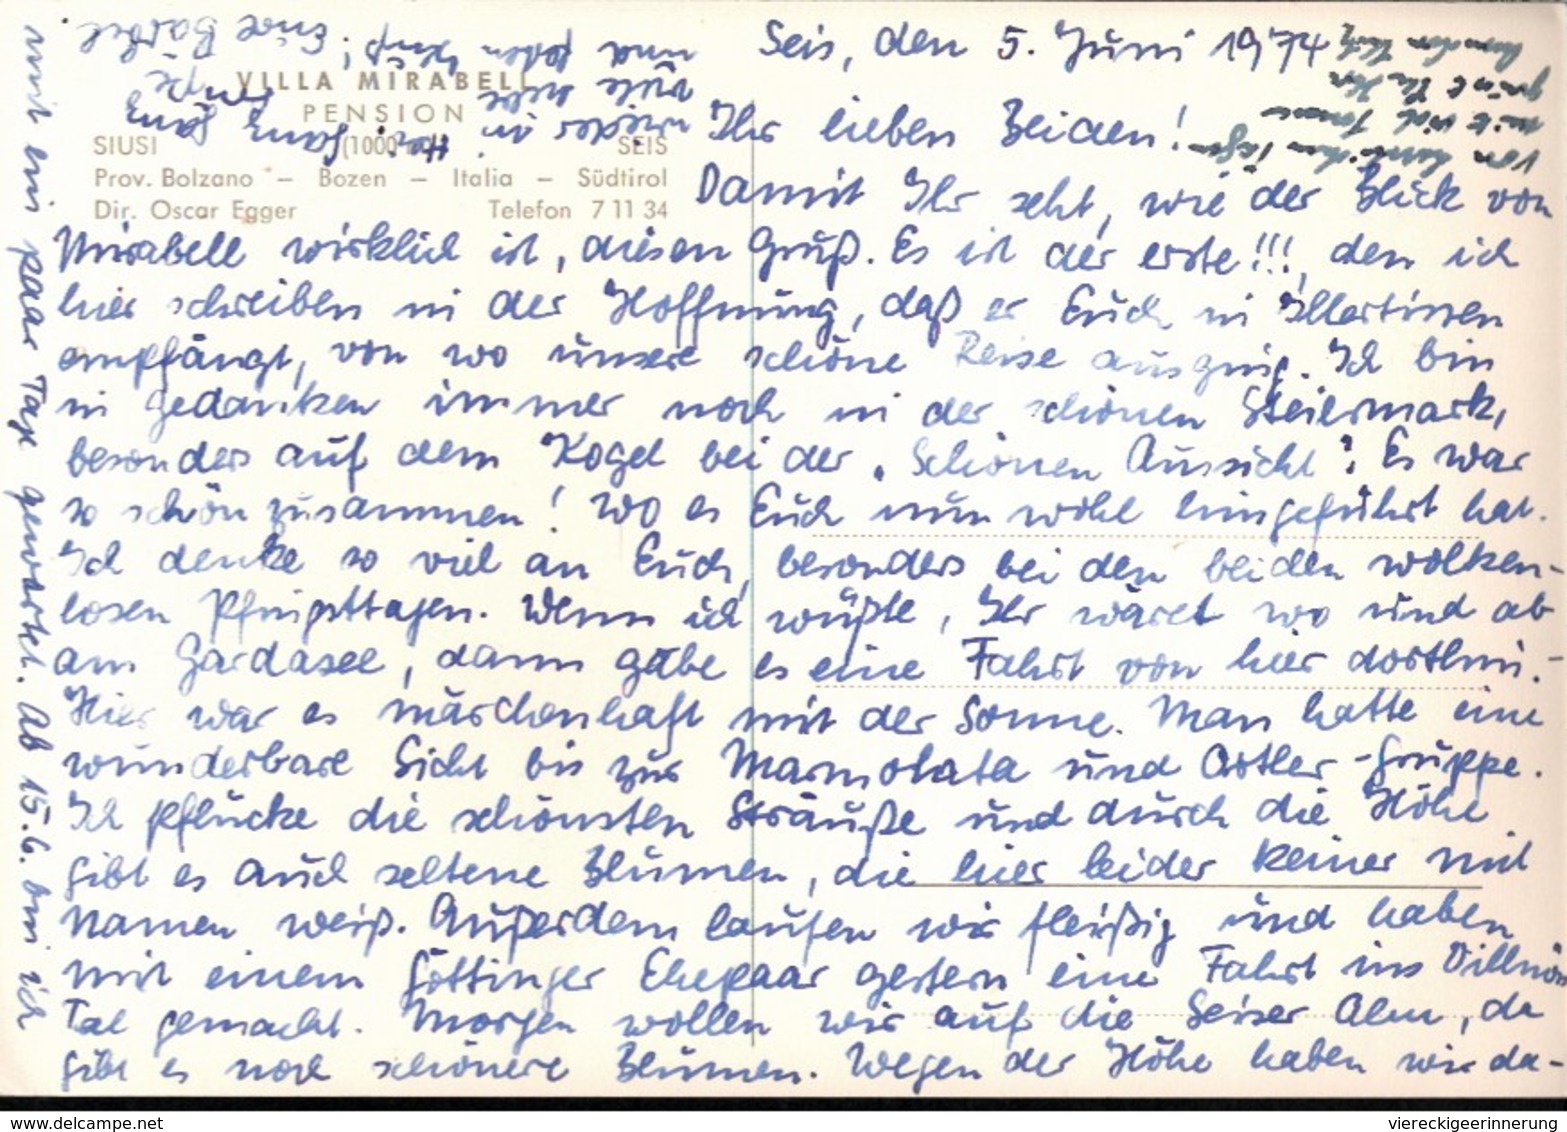 VILLA MIRABELL
PENSION
SIUSI (1000 m) SEIS
Prov. Bolzano – Bozen – Italia – Südtirol
Dir. Oscar Egger Telefon 7 11 34
Seis, den 5. Juni 1974
Ihr lieben Beiden!
Damit Ihr seht, wie der Blick von
Mirabell wirklich ist, diesen Gruß. Es ist der erste!!!, den ich
hier schreiben in der Hoffnung, daß er Euch in Illertissen
empfängt, von wo unsere schöne Reise ausging. Ich bin
in Gedanken immer noch in der schönen Steiermark,
besonders auf dem Kogel bei der "Schönen Aussicht". Es war
so schön zusammen! Wo es Euch nun wohl hingeführt hat.
Ich denke so viel an Euch, besonders bei den beiden wolken-
losen Pfingsttagen. Wenn ich wüßte, Ihr wäret wo und ab
am Gardasee, dann gäbe es eine Fahrt von hier dorthin.-
Hier war es märchenhaft mit der Sonne. Man hatte eine
wunderbare Sicht bis zur Marmolata und Ortler-Gruppe.
Ich pflücke die schönsten Sträuße und durch die Höhe
gibt es auch seltene Blumen, die hier leider keiner mit
Namen weiß. Außerdem laufen wir fleißig und haben
mit einem Göttinger Ehepaar gestern eine Fahrt ins Villnös
Tal gemacht. Morgen wollen wir auf die Seiser Alm, da
gibt es noch schönere Blumen. Wegen der Höhe haben wir da-
mit ein paar Tage gewartet. Ab 15.6. bin ich
wieder in Ganz ganz
viele liebe
und jeden Eure Bärbel.
von
mit viel